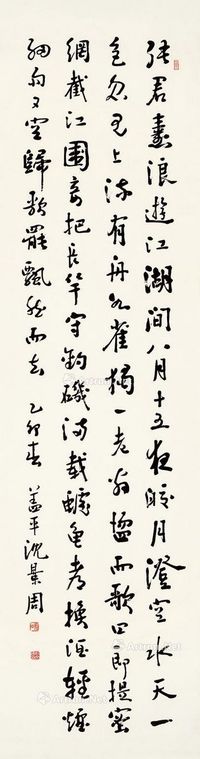 張君壽浪遊江湖間八月十五夜皎月澄空水天一
色忽見上流有舟如雀獨一老翁而歌曰郎提密
網截江圍妾把長竿守釣磯滿載鱸魚都換酒輕煙
細雨又空歸歌罷飄然而去 乙卯春 蓋平沈景周